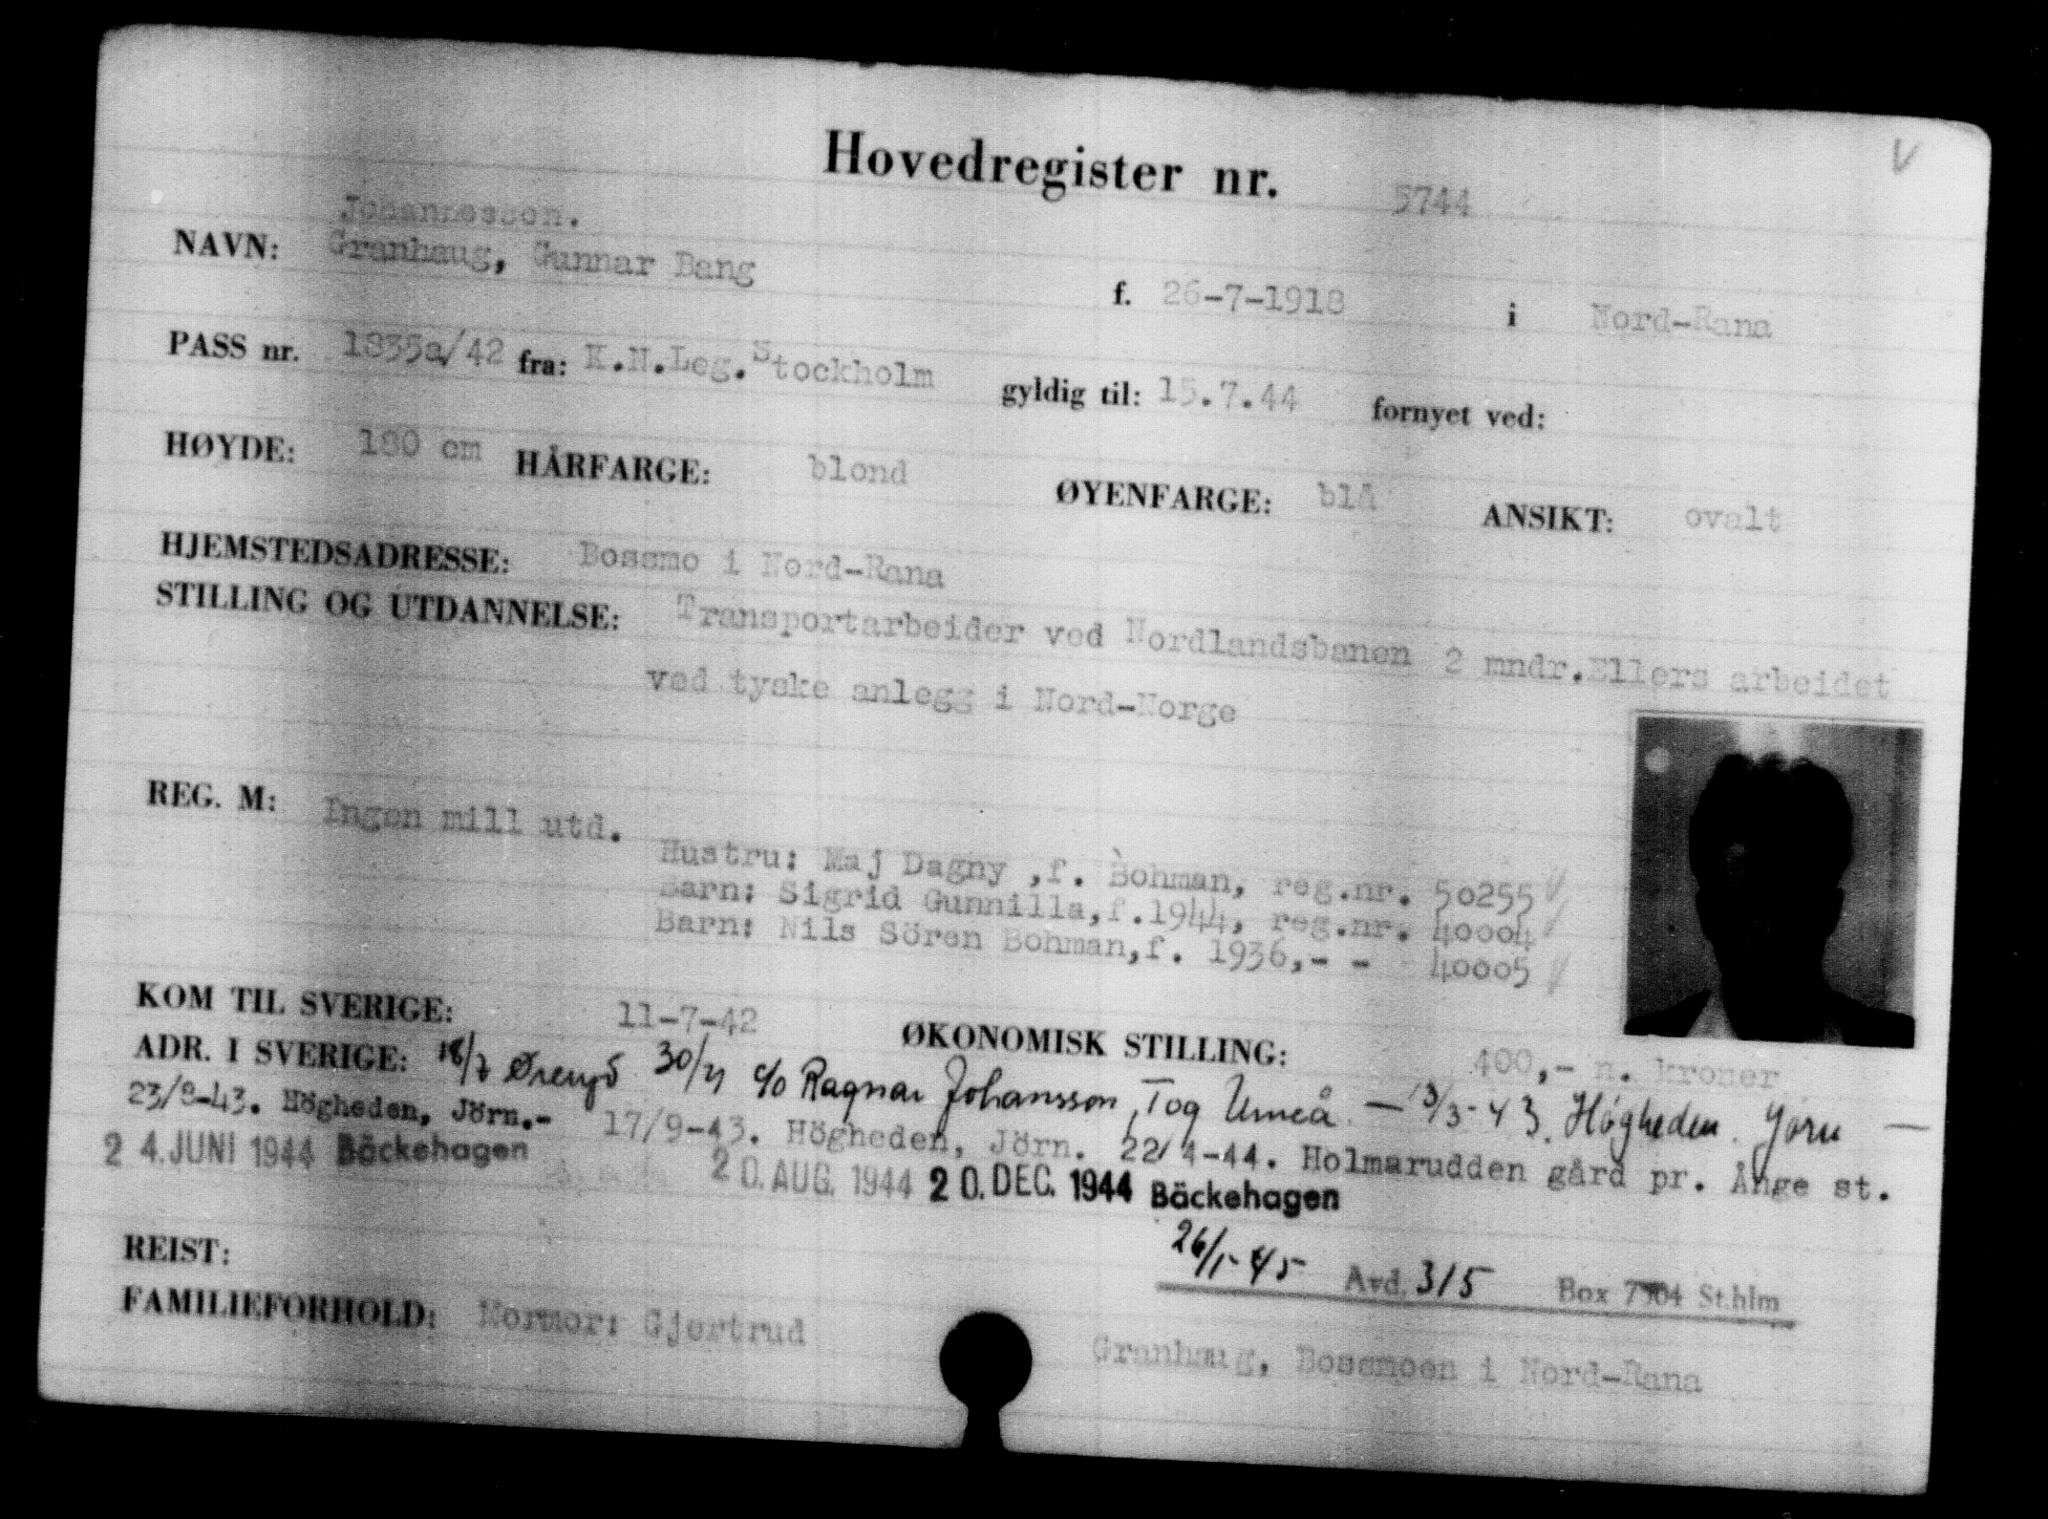 V
Hovedregister nr. 5744
Johannesson.
NAVN: Granhaug, Gunnar Bang f. 26-7-1918 i Nord-Rana
PASS nr. 1835a/42 fra: K.N.Leg.Stockholm gyldig til: 15.7.44 fornyet ved:
HØYDE: 180 cm HÅRFARGE: blond ØYENFARGE: blå ANSIKT: ovalt
HJEMSTEDSADRESSE: Bossmo i Nord-Rana
STILLING OG UTDANNELSE: Transportarbeider ved Nordlandsbanen 2 mndr.Ellers arbeidet
ved tyske anlegg i Nord-Norge
REG. M: Ingen mill utd.
Hustru: Maj Dagny ,f. Bohman, reg.nr. 50255
Barn: Sigrid Gunnilla,f.1944, reg.nr. 40004
Barn: Nils Sören Bohman,f. 1936,- - 40005
KOM TIL SVERIGE: 11-7-42 ØKONOMISK STILLING: 400,- n. kroner
ADR. I SVERIGE: 18/7 Øreryd 30/11 c/o Ragnar Johansson, Tog Umeå — 13/3-43. Høgheden. Jörn —
23/8-43. Högheden, Jörn.- 17/9-43. Högheden, Jörn. 22/4-44. Holmarudden gård pr. Ånge st.
24. JUNI 1944 Bäckehagen 20. AUG. 1944 20. DEC. 1944 Bäckehagen
26/1-45 Avd. 315 Box 7304 St.hlm
REIST:
FAMILIEFORHOLD: Mormor: Gjertrud Granhaug, Bossmoen i Nord-Rana